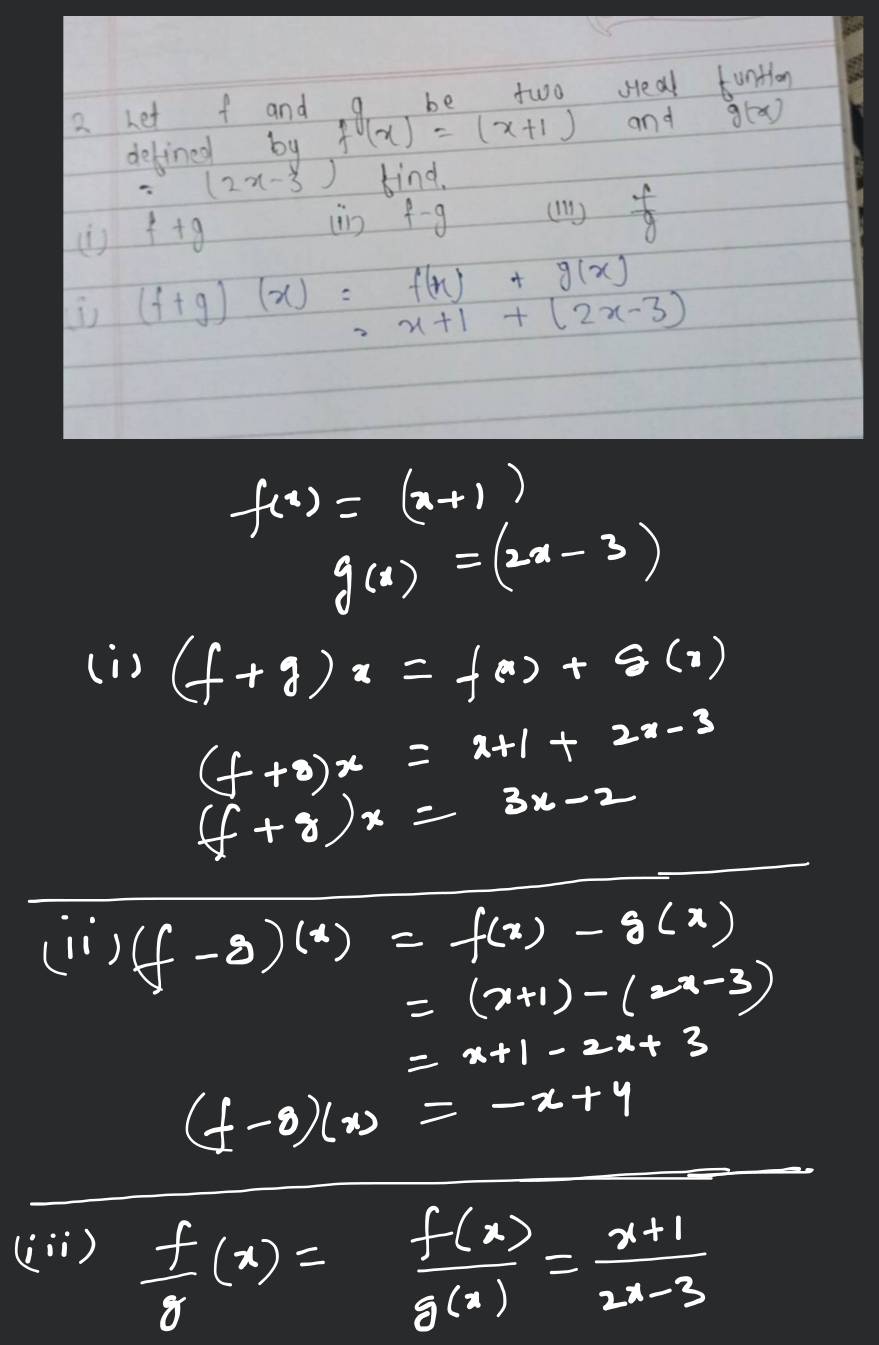 2 Let f and g be two real funtion
defined by f(x) = (x+1) and g(x)
= (2x-3) find.
(i) f+g (ii) f-g (III) f/g
i) (f+g) (x) = f(x) + g(x)
= x+1 + (2x-3)
f(x) = (x+1)
g(x) = (2x-3)
(i) (f+g)x = f(x) + g(x)
(f+g)x = x+1 + 2x-3
(f+g)x = 3x-2
(ii) (f-g)(x) = f(x) - g(x)
= (x+1)-(2x-3)
= x+1-2x+3
(f-g)(x) = -x+4
(iii) f/g (x) = f(x)/g(x) = x+1/2x-3